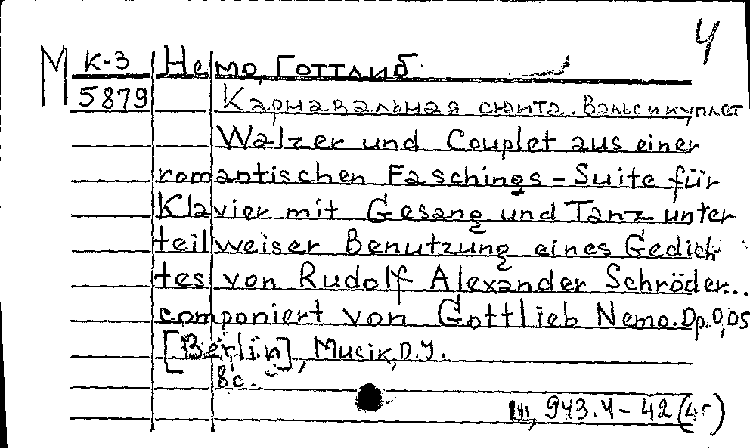 4
М К-3 Немо, Готтлиб.
5879 Карнавальная сюита. Вальс и куплет
Walzer und Couplet aus einer
romantischen Faschings-Suite für
Klavier mit Gesang und Tanz unter
teilweiser Benutzung eines Gedich
tes von Rudolf Alexander Schröder..
componiert von Gottlieb Nemo. Op. 0,05
[Berlin], Musik, O.J.
8 с.
943.4-42